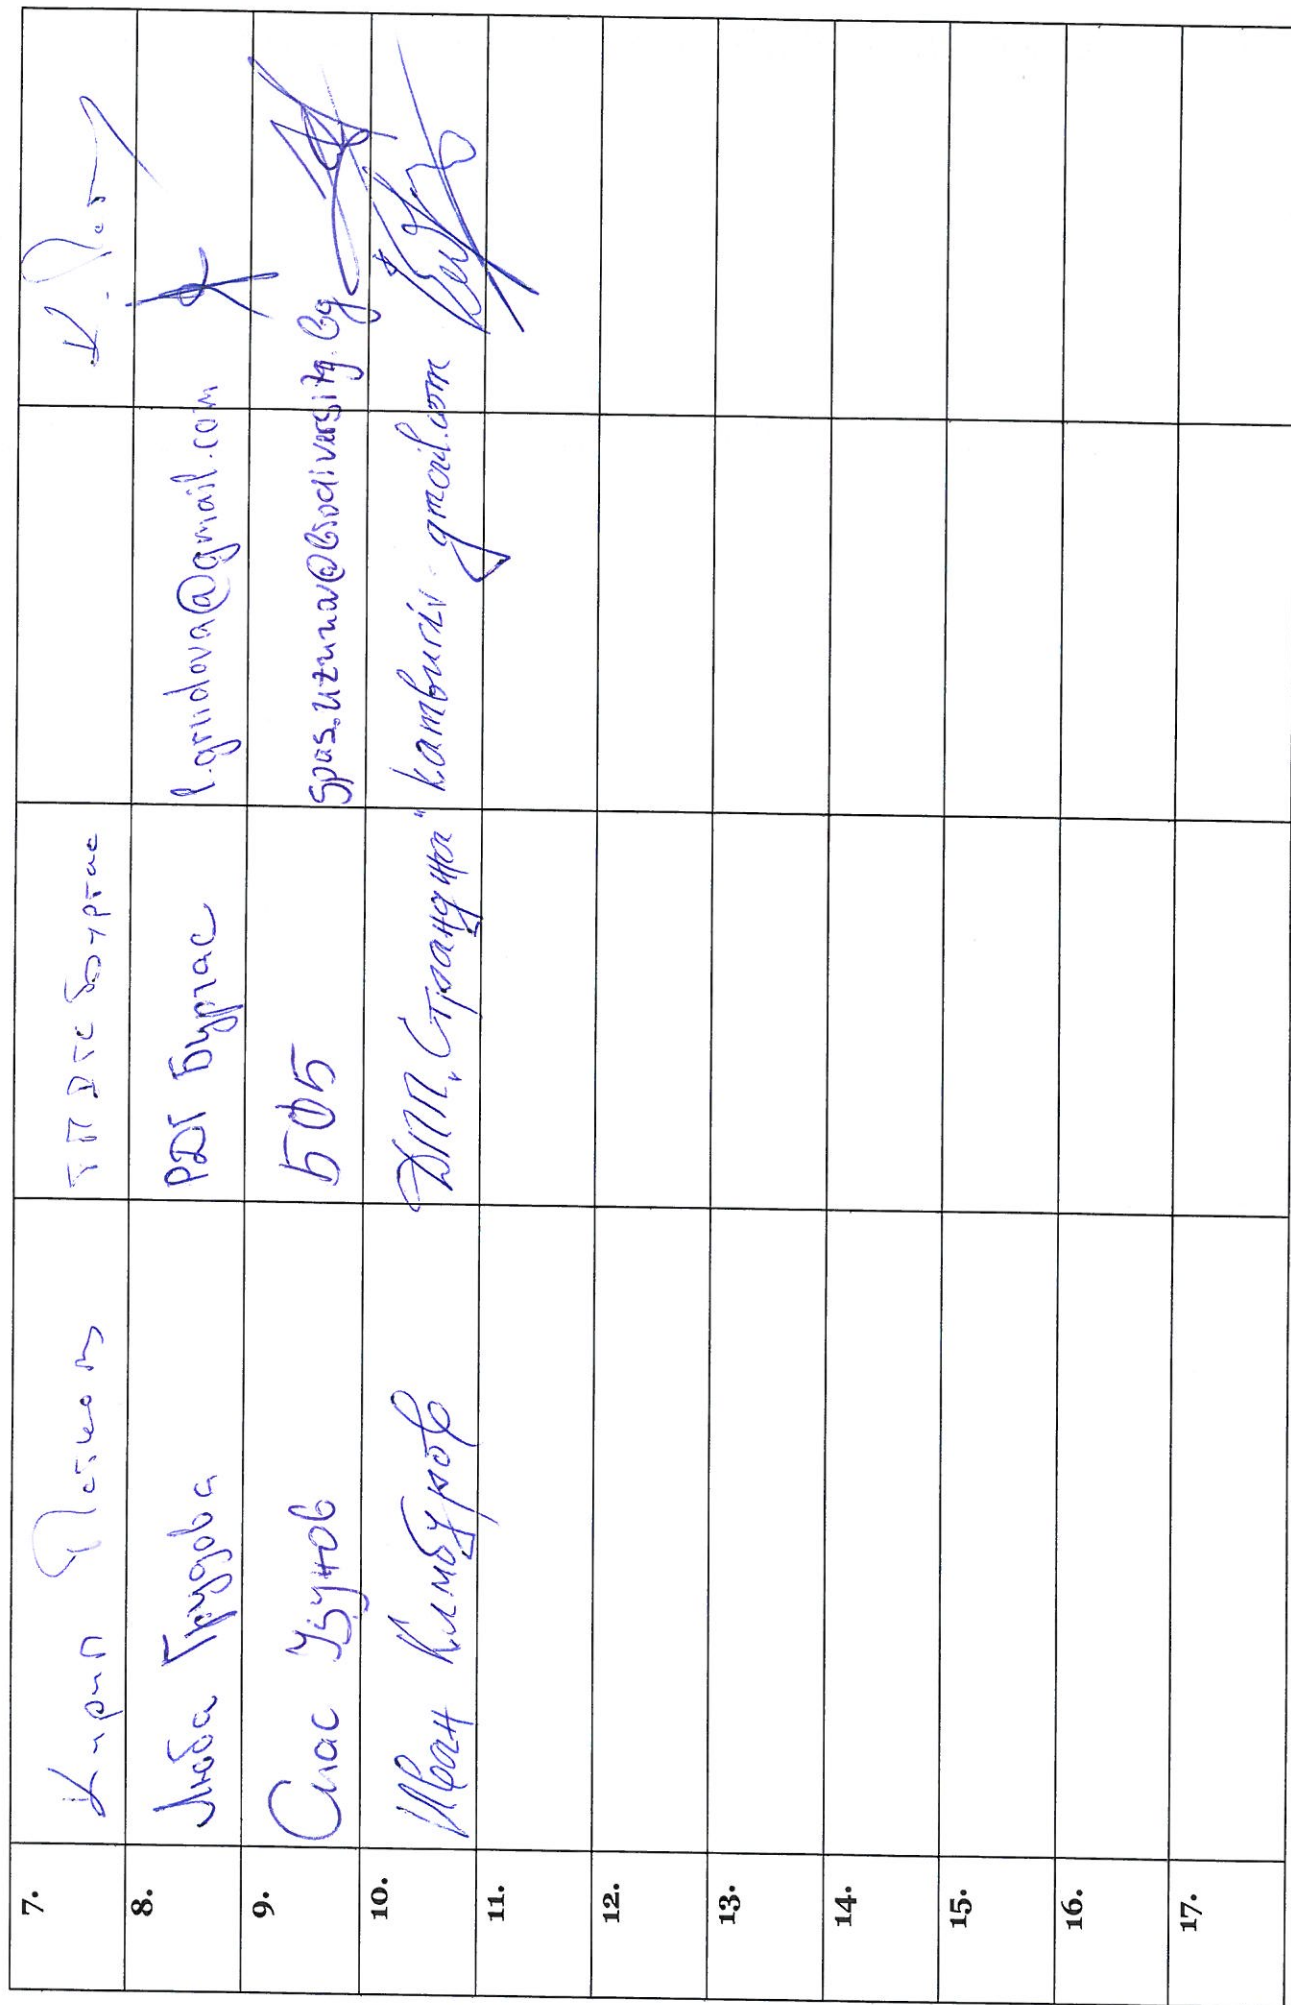 7. Кирил Петков ТП ДГС Бургас
8. Люба Грудова РДГ Бургас l.grudova@gmail.com
9. Спас Узунов БФБ spas.uzunov@biodiversity.bg
10. Иван Камбуров ДПП „Странджа“ gmail.com
11.
12.
13.
14.
15.
16.
17.